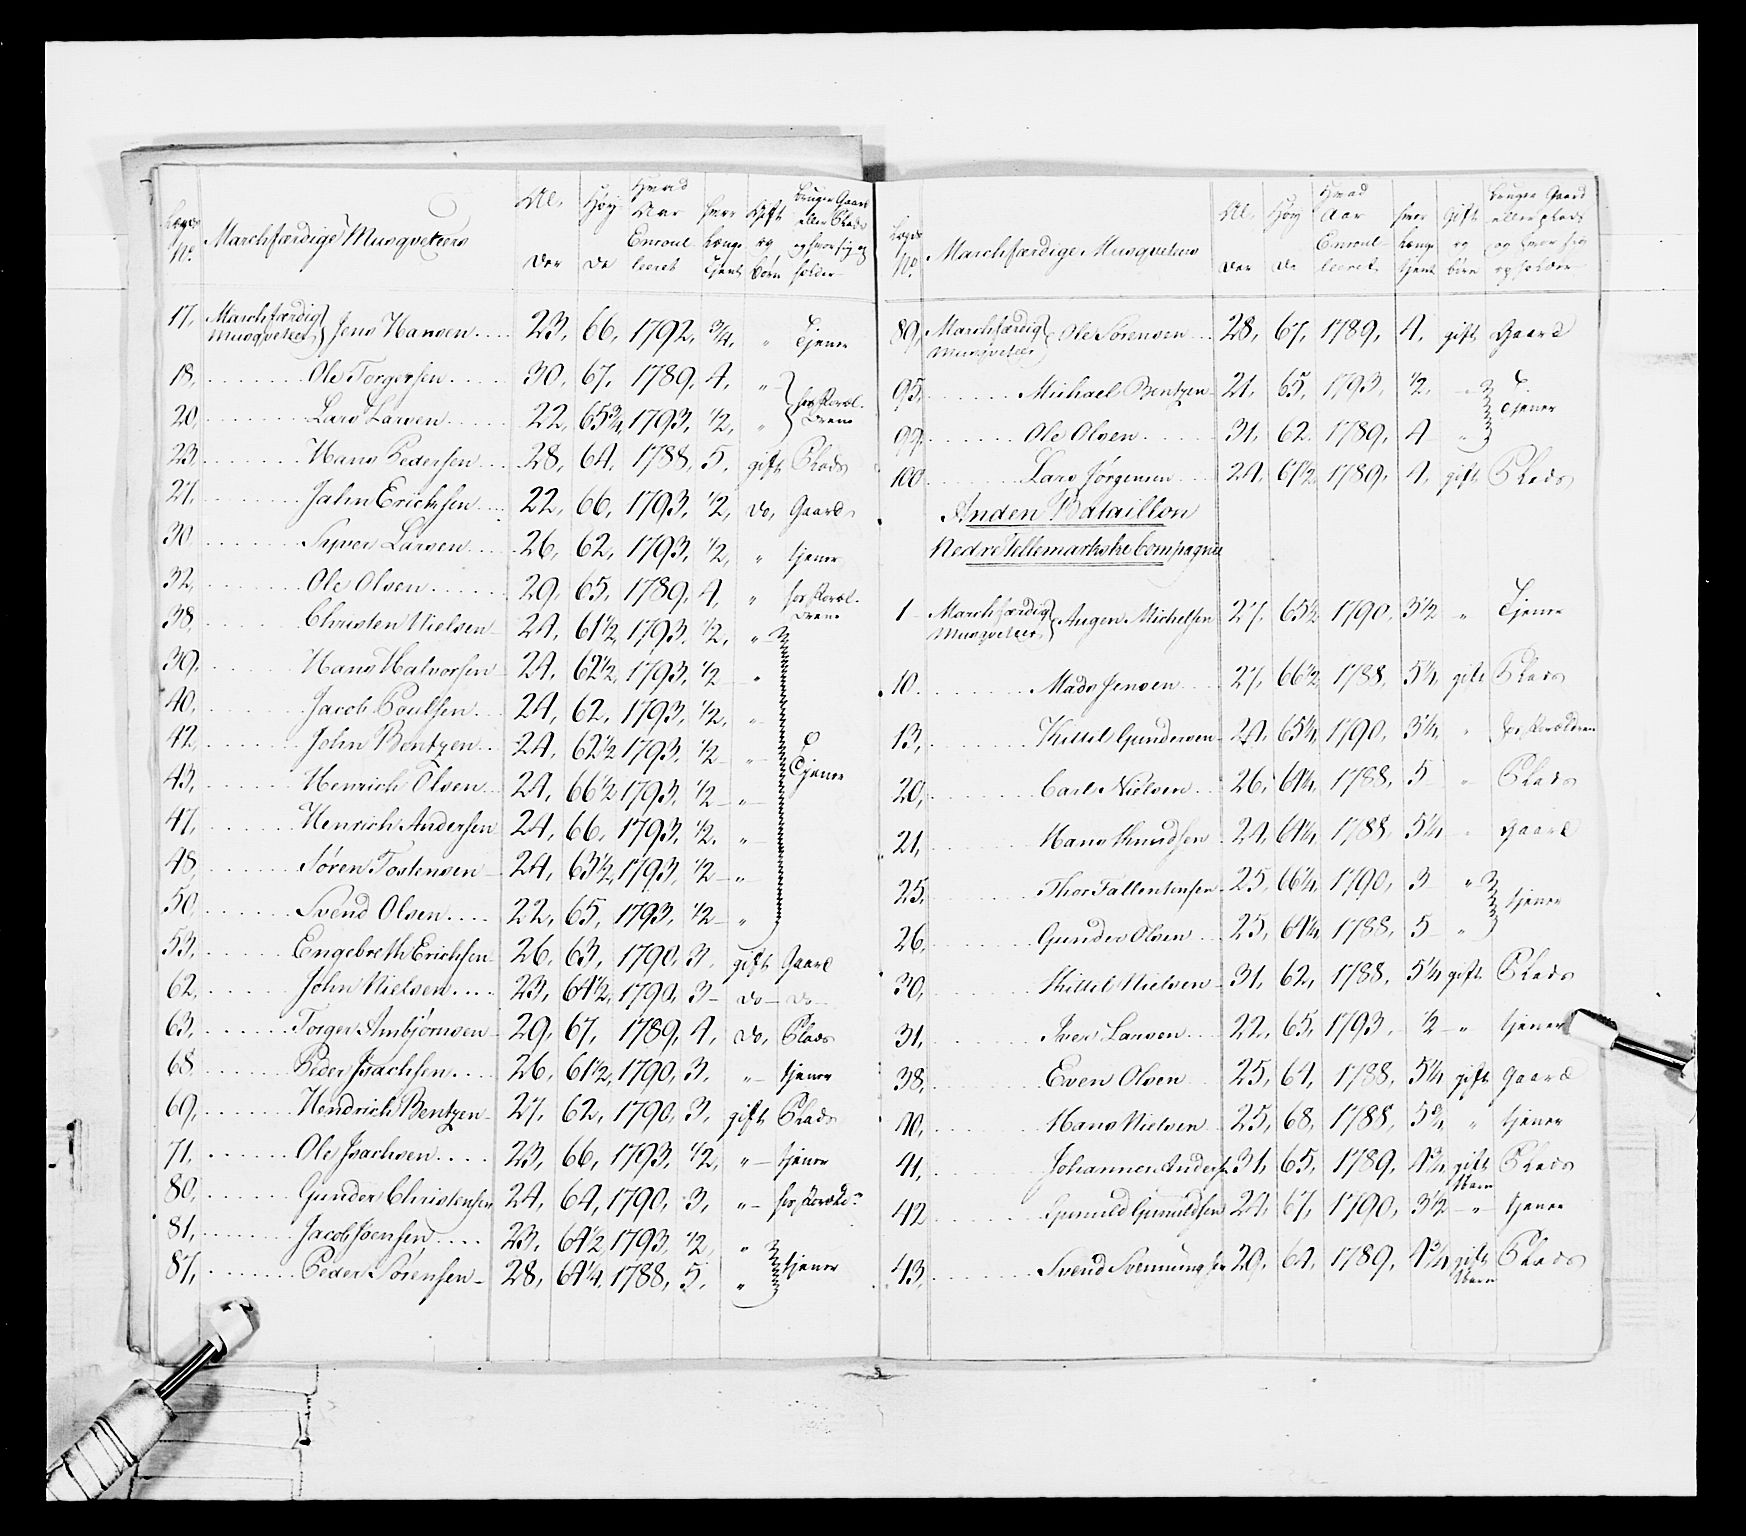 Lægds No. Marchfærdige Musqveteers Al, der Høy de Hvad Aar Enroul leeret hvor længe tjent Gift og børn bruger Gaard eller Plads og hvor sig opholder
17, Marchfærdig Musqveteer Jens Hansen 23, 66, 1792, 3/4, " Tjener
18, Ole Torgersen 30, 67, 1789, 4, "
20, Lars Larsen 22, 65 3/4, 1793, 1/2, " hos Foræl. drene
23, Hans Pedersen 28, 64, 1788, 5, gift Plads
27, Jahn Erichsen 22, 66, 1793, 1/2, do, Gaard
30, Syver Larsen 26, 62, 1793, 1/2, " tjener
32, Ole Olsen 29, 65, 1789, 4, " hos Foræl. drene
38, Christen Nielsen 24, 61 1/2, 1793, 1/2, "
39, Hans Halvorsen 24, 62 1/2, 1793, 1/2 "
40, Jacob Poulsen 24, 62, 1793, 1/2, "
42, John Bentzen 24, 62 1/2, 1793, 1/2 " Tjener
43, Henrich Olsen 24, 66 1/2, 1793, 1/2 "
47, Henrich Andersen 24, 66, 1793, 1/2, "
48, Søren Tostensen 24, 63 1/2, 1793, 1/2 "
50, Svend Olsen 22, 65, 1793, 1/2 "
53, Engebreth Erichsen 26, 63, 1790, 3, gift Gaard
62, John Nielsen 23, 64 1/2, 1790, 3 do do
63, Torger Ambjørnsen 29, 67, 1789, 4, do, Plads
68 Peder Isachsen 26, 61 1/2, 1790, 3, " tjener
69, Hendrich Bentzen 27, 62, 1790, 3, gift Plads
71, Ole Isachsen 23, 66, 1793, 1/2, " tjener
80, Gunder Christensen 24, 64, 1790, 3, " hos Foræld:
81, Jacob Joensen 23, 64 1/2 1793, 1/2, "
87, Peder Sørensen 28, 64 1/4, 1788, 5, " tjener
Lægds No. Marchfærdige Musqveteers Al, der Høy de Hvad Aar Enroul leeret hvor længe tjent gift og børn bruger Gaard eller plads og hvor sig opholder
89, Marchfærdig Musqveteer Ole Sørensen 28, 67, 1789, 4, gift Gaard
95, Michael Bentzen 21, 65, 1793, 1/2, "
99, Ole Olsen 31, 62, 1789, 4 " Tjener
100 Lars Jørgensen 24, 67 1/2, 1789, 4, gift Plads
Anden Bataillon
Nedre Tellemarkske Compagnie
1 Marchfærdig Musqveteer Aagen Michelsen 27, 65 1/2, 1790, 3 1/2 " Tjener
10. Mads Jensen 27, 66 1/2, 1788, 5 1/4, gift Plads
13, Kittil Gundersen 24, 65 1/4, 1790, 3 1/4, " hos Forældrene
20, Carl Nielsen 26, 64 1/4, 1788, 5 " Plads
21, Hans Knudsen 24, 64 1/4, 1788, 5 1/4 " gaard
25, Thor Tallentensen 25, 66 1/4, 1790, 3 "
26, Gunder Olsen 25, 64 1/4, 1788, 5 " tjener
30, Kittil Nielsen 31, 62, 1788, 5 1/4 gift Plads
31, Iver Larsen 22, 65, 1793, 1/2 " tjener
38, Even Olsen 25, 64, 1788, 5 1/4 gift Gaard
40, Hans Nielsen 25, 68, 1788, 5 3/4 " tjener
41, Johannes Anders: 31, 65, 1789, 4 3/4 gift 1 barn Plads
42 Gunuld Gunuldsen 24, 67, 1790, 3 1/2 " tjener
43, Svend Svenningsen 29, 64, 1789, 4 3/4 gift 1 barn Plads